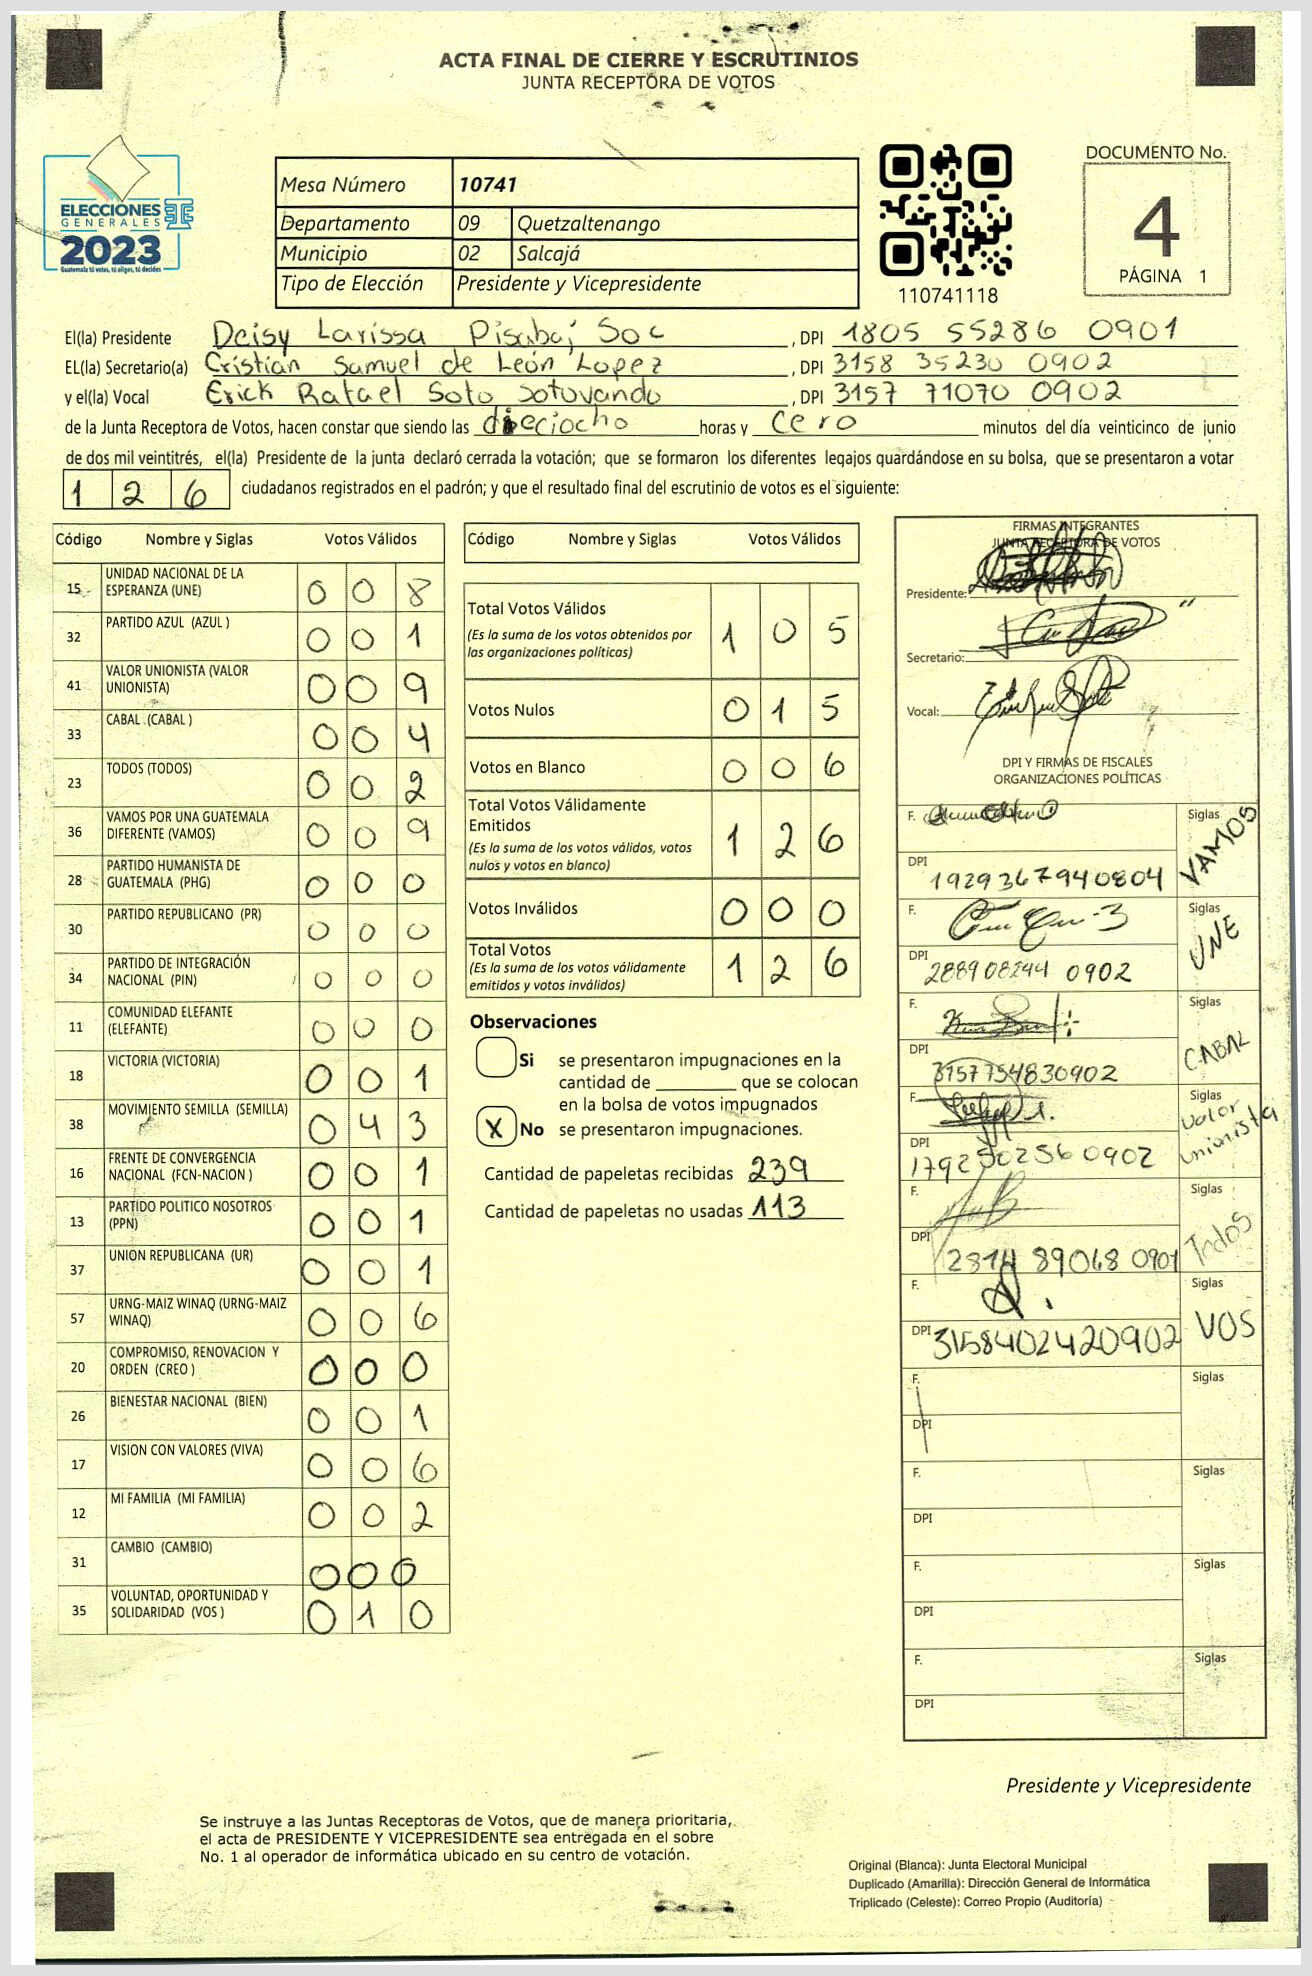 ACTA FINAL DE CIERRE Y ESCRUTINIOS
JUNTA RECEPTORA DE VOTOS
ELECCIONES
GENERALES
2023
Guatemala tú votas, tú eliges, tú decides
Mesa Número 10741
Departamento 09 Quetzaltenango
Municipio 02 Salcajá
Tipo de Elección Presidente y Vicepresidente
110741118
DOCUMENTO No.
4
PÁGINA 1
El(la) Presidente Deisy Larissa Pisabaj Soc , DPI 1805 55286 0901
EL(la) Secretario(a) Cristian Samuel de León Lopez , DPI 3158 35230 0902
y el(la) Vocal Erick Rafael Soto Sotovando , DPI 3157 71070 0902
de la Junta Receptora de Votos, hacen constar que siendo las dieciocho horas y cero minutos del día veinticinco de junio
de dos mil veintitrés, el(la) Presidente de la junta declaró cerrada la votación; que se formaron los diferentes legajos guardándose en su bolsa, que se presentaron a votar
1 2 6 ciudadanos registrados en el padrón; y que el resultado final del escrutinio de votos es el siguiente:
Código Nombre y Siglas Votos Válidos
15 UNIDAD NACIONAL DE LA ESPERANZA (UNE) 0 0 8
32 PARTIDO AZUL (AZUL ) 0 0 1
41 VALOR UNIONISTA (VALOR UNIONISTA) 0 0 9
33 CABAL (CABAL ) 0 0 4
23 TODOS (TODOS) 0 0 2
36 VAMOS POR UNA GUATEMALA DIFERENTE (VAMOS) 0 0 9
28 PARTIDO HUMANISTA DE GUATEMALA (PHG) 0 0 0
30 PARTIDO REPUBLICANO (PR) 0 0 0
34 PARTIDO DE INTEGRACIÓN NACIONAL (PIN) 0 0 0
11 COMUNIDAD ELEFANTE (ELEFANTE) 0 0 0
18 VICTORIA (VICTORIA) 0 0 1
38 MOVIMIENTO SEMILLA (SEMILLA) 0 4 3
16 FRENTE DE CONVERGENCIA NACIONAL (FCN-NACION ) 0 0 1
13 PARTIDO POLITICO NOSOTROS (PPN) 0 0 1
37 UNION REPUBLICANA (UR) 0 0 1
57 URNG-MAIZ WINAQ (URNG-MAIZ WINAQ) 0 0 6
20 COMPROMISO, RENOVACION Y ORDEN (CREO ) 0 0 0
26 BIENESTAR NACIONAL (BIEN) 0 0 1
17 VISION CON VALORES (VIVA) 0 0 6
12 MI FAMILIA (MI FAMILIA) 0 0 2
31 CAMBIO (CAMBIO) 0 0 0
35 VOLUNTAD, OPORTUNIDAD Y SOLIDARIDAD (VOS ) 0 1 0
Código Nombre y Siglas Votos Válidos
Total Votos Válidos 1 0 5
(Es la suma de los votos obtenidos por
las organizaciones políticas)
Votos Nulos 0 1 5
Votos en Blanco 0 0 6
Total Votos Válidamente
Emitidos 1 2 6
(Es la suma de los votos válidos, votos
nulos y votos en blanco)
Votos Inválidos 0 0 0
Total Votos 1 2 6
(Es la suma de los votos válidamente
emitidos y votos inválidos)
Observaciones
Si se presentaron impugnaciones en la
cantidad de ________ que se colocan
en la bolsa de votos impugnados
X No se presentaron impugnaciones.
Cantidad de papeletas recibidas 239
Cantidad de papeletas no usadas 113
FIRMAS INTEGRANTES
JUNTA RECEPTORA DE VOTOS
Presidente:
Secretario:
Vocal:
DPI Y FIRMAS DE FISCALES
ORGANIZACIONES POLÍTICAS
F. Siglas VAMOS
DPI 1929367940804
F. Siglas UNE
DPI 288908244 0902
F. Siglas CABAL
DPI 3157754830902
F. Siglas Valor Unionista
DPI 1792502560902
F. Siglas Todos
DPI 2314 89068 0901
F. Siglas VOS
DPI 3158402420902
F. Siglas
DPI
F. Siglas
DPI
F. Siglas
DPI
F. Siglas
DPI
Presidente y Vicepresidente
Se instruye a las Juntas Receptoras de Votos, que de manera prioritaria,
el acta de PRESIDENTE Y VICEPRESIDENTE sea entregada en el sobre
No. 1 al operador de informática ubicado en su centro de votación.
Original (Blanca): Junta Electoral Municipal
Duplicado (Amarilla): Dirección General de Informática
Triplicado (Celeste): Correo Propio (Auditoría)